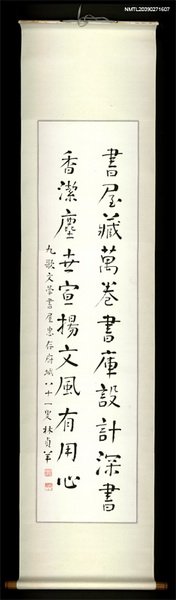 NMTL20090271607
書屋藏萬卷書庫設計深書
香潔塵世宣揚文風有用心
九歌文學書屋惠存府城八十一叟林貞羊